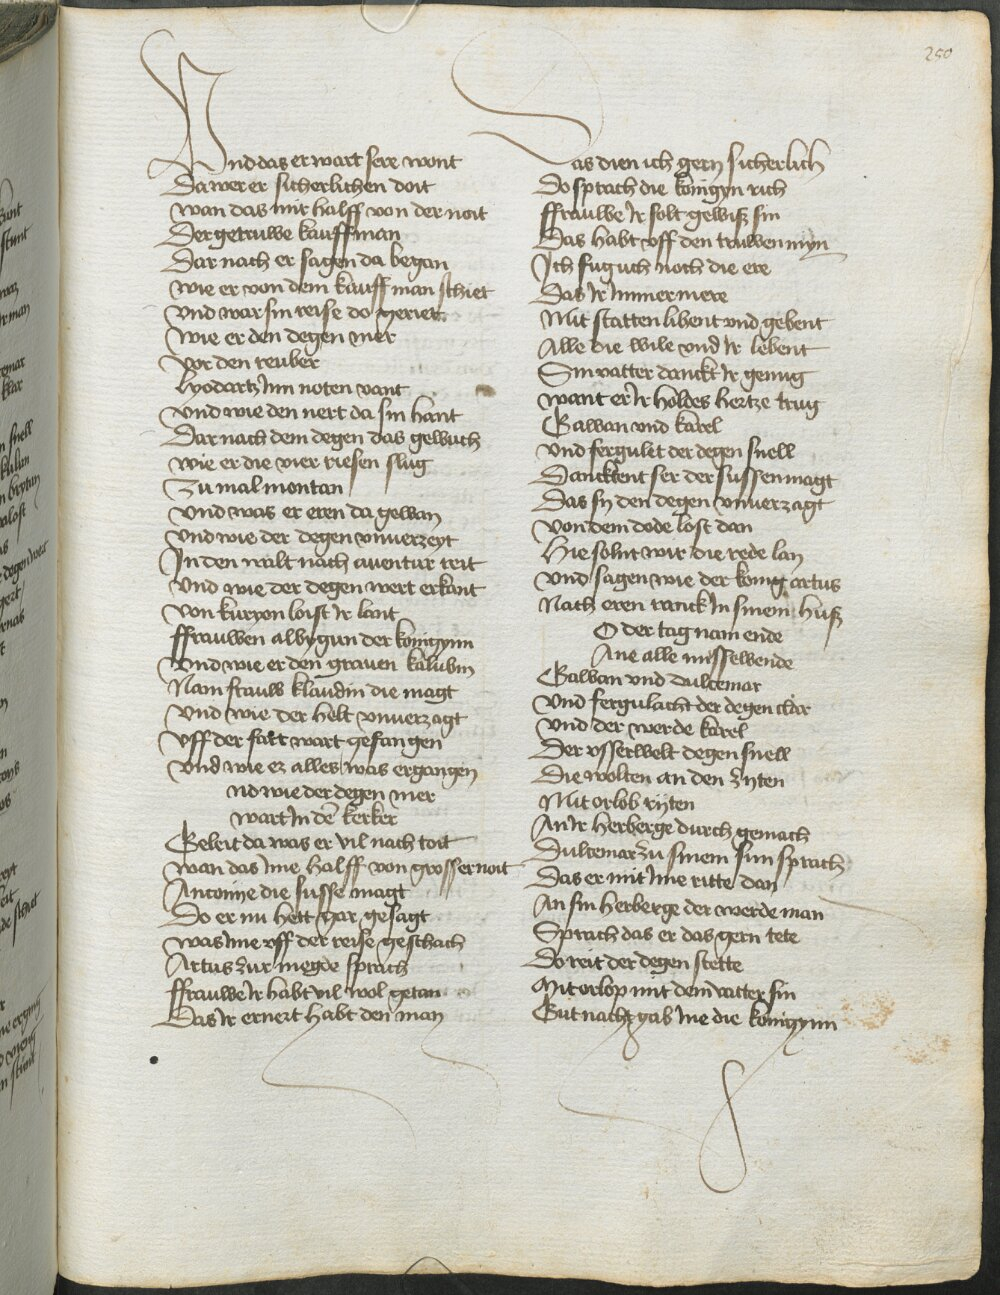 250
Vnd das er wart sere wont
Da wer er sicherlichen doit
wan das mir halff von der noit
Der getruwe kauffman
Dar nach er sagen da began
wie er von dem kauffman schiet
vnd war sin reise do geriet
wie er den degen mer
vor den reuber
Lyodartz Inn noten vant
vnd wie den nert da sin hant
Dar nach dem degen das geluch
wie er die vier riesen slug
Zu mal montan
vnd was er eren da gewan
vnd wie der degen vnuerzeyt
In den walt nach auentur reit
vnd wie der degen wert erkant
von kuryon loist Ir lant
ffrauwen albygun der konigynn
vnd wie er den grauen kalubin
Nam frauw klaudin die magt
vnd wie der helt vnuerzagt
vff der fart wart gefangen
vnd wie ez alles was ergangen
nd wie der degen mer
wart In dē kerker
Geleit da was er vil nach toit
wan das Ime halff von grosser noit
Antonie die susse magt
Do er nu hett gar gesagt
was Ime vff der reise geschach
Artus zur megde sprach
ffrauwe Ir habt vil wol getan
Das Ir ernert habt den man
Das dien ich gern sicherlich
Do sprach die konigyn rich
ffrauwe Ir solt gewisz sin
Das habt vff den truwen myn
Ich fug uch noch die ere
Das Ir Immer mere
Mit statten libent vnd gebent
Alle die wile vnd Ir lebent
Sin vatter danckt Ir genug
want er Ir holdes hertze trug
Galwan vnd karel
vnd fergulet der degen snell
Danckent ser der sussen magt
Das sy den degen vnuerzagt
von dem dode lost dan
Hie solnt wir die rede lan
vnd sagen wie der konig artus
Nach eren ranck In sinem husz
O der tag nam ende
Ane alle missewende
Galwan vnd dulcemar
vnd fergulacht der degen clar
vnd der werde karel
Der vsserwelt degen snell
Die wolten an den zyten
Mit orlob ryten
An Ir herberge durch gemach
Dulcemar zu sinem sun sprach
Das er mit Ime ritte dan
An sin herberge der werde man
Sprach das er das gern tete
Do reit der degen stette
Mit orlop mit dem vatter sin
Gut nacht gab Ime die konigynn